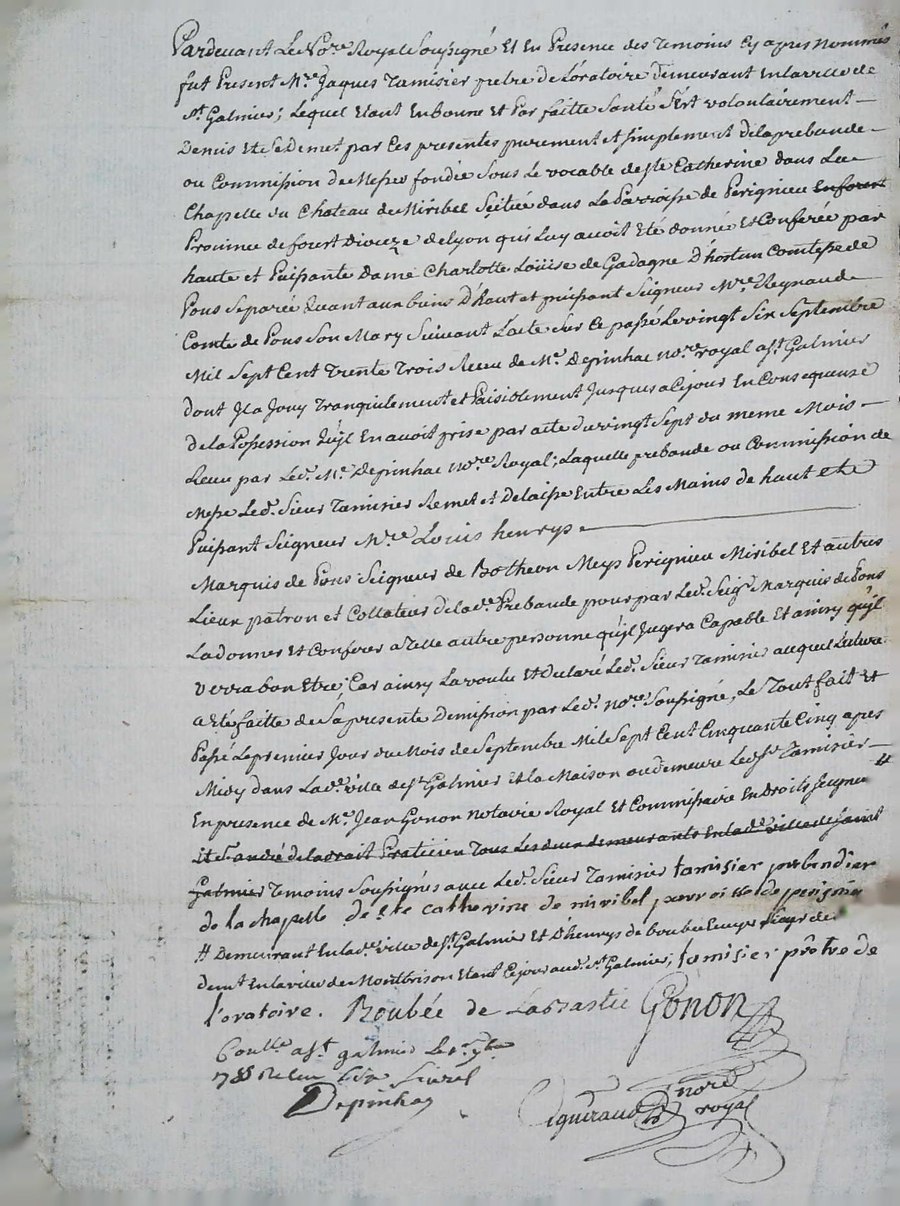 Pardevant Le No.re Royal Soussigné Et En Presence des Temoins Cy apres nommés
fut Present M.re Jaques Tamisier prebre de L'oratoire Demeurant En la ville de
St. Galmier; Lequel Etant En bonne et Parfaitte Santé S'est volontairement
Demis Et Se Demet par Ces presentes purement et simplement de la prebande
ou Commission de Messes fondée Sous Le vocable de Ste Catherine dans La
Chapelle du Chateau de Miribel Scitué dans La Parroisse de Perignieu
Province de fourt Dioceze de Lyon qui Luy avoit Eté donné Et Conferée par
haute et Puissante Dame Charlotte Loüise de Gadagne D'hostun Comtesse de
Pons Separée Quant aux biens D'haut et puissant Seigneur M.re Reynaud
Comte de Pons Son Mary Suivant L'acte Sur Ce passé Le vingt Six Septembre
Mil Sept Cent Trente Trois Receu de M.e Depinhac No.re royal a St. Galmier
dont Jl a Jouy Tranquilement et Paisiblement Jusques a Ce jour En Consequense
de la Possession Qu'jl En avoit prise par acte du vingt Sept du meme Mois
Receu par Led. M.e Depinhac No.re Royal; Laquelle prebande ou Commission de
Messe Led. Sieur Tamisier Remet et Delaisse Entre Les Mains de haut et
Puissant Seigneur M.re Louis henrys
Marquis de Pons Seigneur de Botheon Meys Perignieu Miribel Et autres
Lieux patron et Collateur de lad.e Prebande pour par Led. Seig.r Marquis de Pons
La donner Et Conferer a Telle autre personne qu'jl Jugera Capable Et ainsy qu'jl
Verra bon Etre; Car ainsy La voulu Et Declaré Led. Sieur Tamisier auquel Lecture
a Eté faitte de Sa presente Demission par Led. No.re Soussigné, Le Tout fait Et
Passé Le premier Jour du Mois de Septembre Mil Sept Cent Cinquante Cinq apres
Midy dans Lad.e ville de St. Galmier Et la Maison ou demeure Led. Sr. Tamisier
En presence de M.e Jean Gonon Notaire Royal Et Commissaire En Droits Seigneu #
Praticien Tous Les deux demeurants En lad.e ville de Saint
Galmier Temoins Soussignés avec Led. Sieur Tamisier tamisier prebandier
de la chapelle de Ste catherine de miribel parroisse de perignieu
# Demeurant En lad.e ville de St. Galmier Et D'henrys de boubée
demt En la ville de Montbrison Etant Ce jour aud. St. Galmier; tamisier prêtre de
l'oratoire. Boubée de Labastie Gonon
Conlle a St. galmier Le
Depinhac
nore
royal